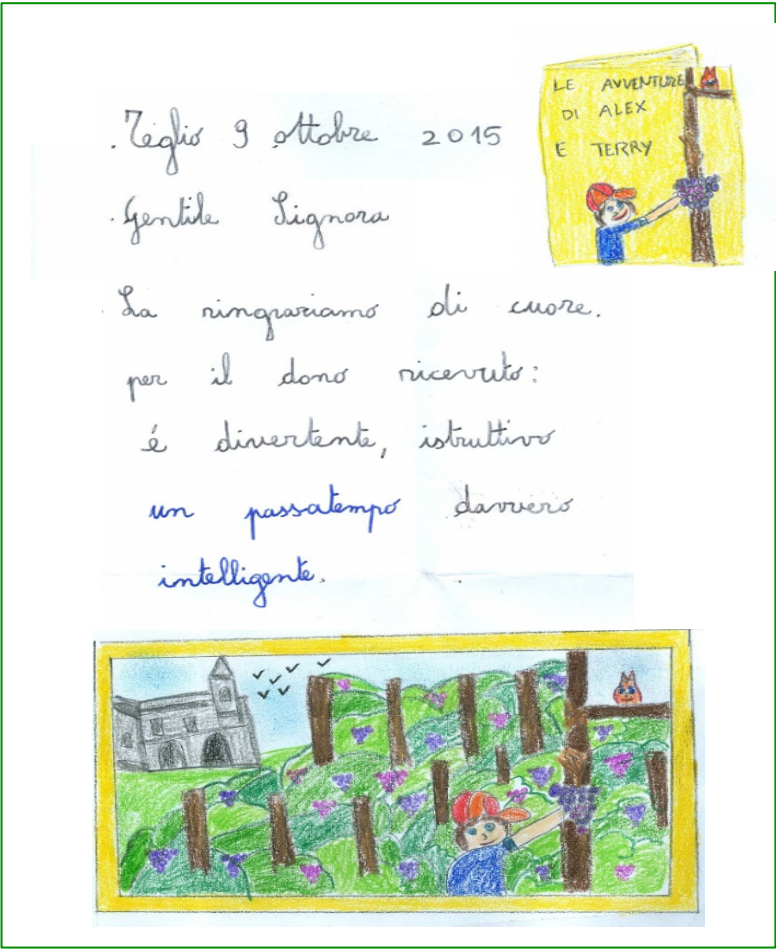 LE AVVENTURE
DI ALEX
E TERRY
Teglio 9 ottobre 2015
Gentile Signora
La ringraziamo di cuore.
per il dono ricevuto:
é divertente, istruttivo
un passatempo davvero
intelligente.